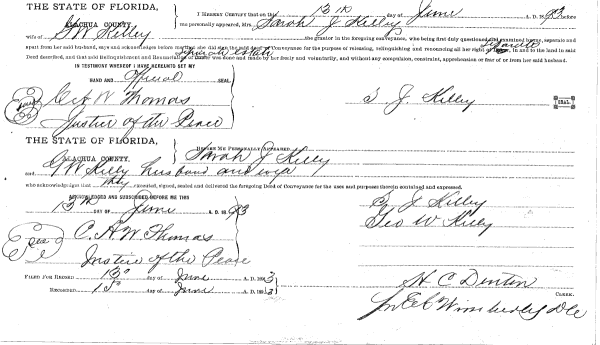 THE STATE OF FLORIDA,
ALACHUA COUNTY.
I HEREBY CERTIFY that on this 13th day of June A. D. 1893 before
me personally appeared, Mrs. Sarah J Kelley
wife of G W Kelley the grantor in the foregoing conveyance, who being first duly questioned and examined before, separate and
apart from her said husband, says and acknowledges before me that she did sign the said deed of Conveyance for the purpose of releasing, relinquishing and renouncing all her right of Separate in and to the land in said
Deed described, and that said Relinquishment and Renunciation of estate was done and made by her freely and voluntarily, and without any compulsion, constraint, apprehension or fear of or from her said husband.
IN TESTIMONY WHEREOF I HAVE HEREUNTO SET MY
HAND AND Official SEAL
C A W Thomas
Justice of the Peace
S J Kelley SEAL
THE STATE OF FLORIDA,
ALACHUA COUNTY.
BEFORE ME PERSONALLY APPEARED Sarah J Kelly
and G W Kelly husband and
who acknowledged that they executed, signed, sealed and delivered the foregoing Deed of Conveyance for the uses and purposes therein contained and expressed.
ACKNOWLEDGED AND SUBSCRIBED BEFORE ME THIS
13th DAY OF June A. D. 1893
S J Kelley
Geo W Kelly
C. A. W. Thomas
Justice of the Peace
FILED FOR RECORD 13" day of June A. D. 1893
RECORDED 15" day of June A. D. 1893
H C Denton CLERK.
Wimberly DC